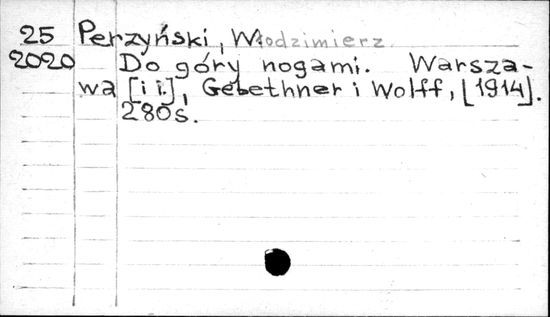 25 Perzyński, Włodzimierz
2020 Do góry nogami. Warsza-
wa [i i.], Gebethner i Wolff, [1914].
280s.